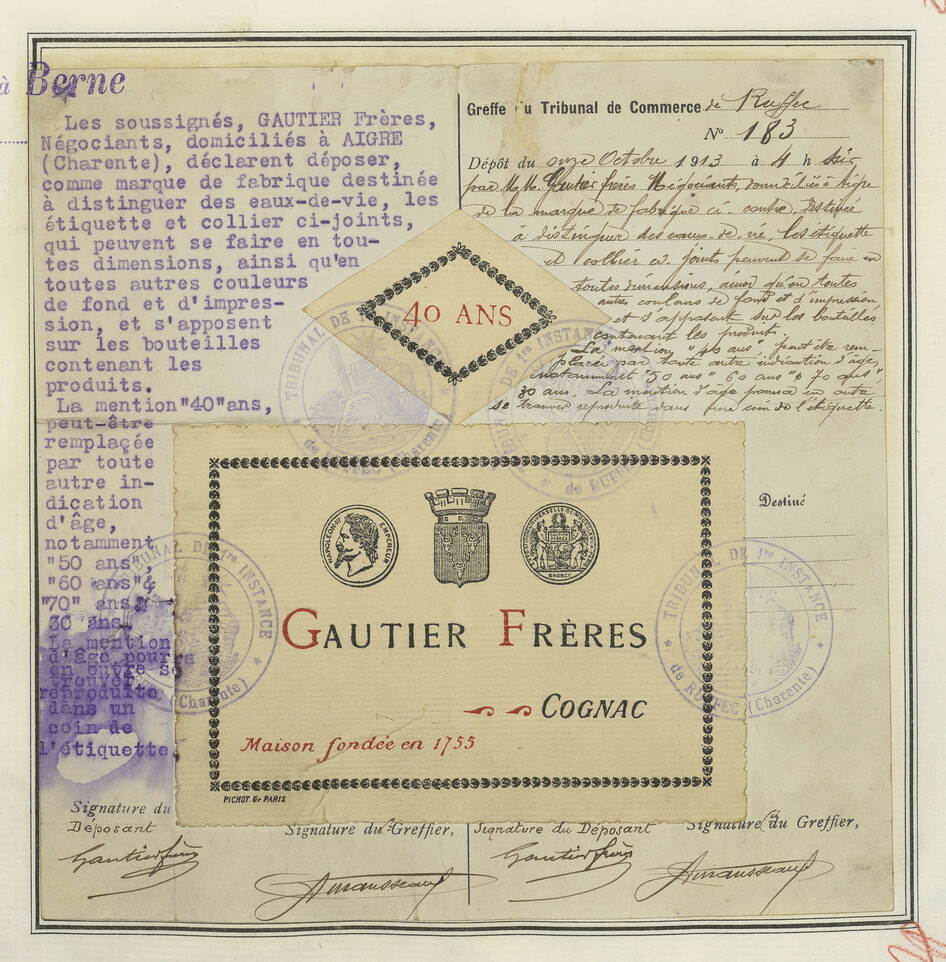 à Berne
Les soussignés, GAUTIER Frères,
Négociants, domiciliés à AIGRE
(Charente), déclarent déposer,
comme marque de fabrique destinée
à distinguer des eaux-de-vie, les
étiquette et collier ci-joints,
qui peuvent se faire en tou-
tes dimensions, ainsi qu'en
toutes autres couleurs
de fond et d'impres-
sion, et s'apposent
sur les bouteilles
contenant les
produits.
La mention "40" ans,
peut-être
remplaçée
par toute
autre in-
dication
d'âge,
notamment
"50 ans",
"60 ans" &
"70" ans &
30 ans.
La mention
d'âge pourra
en outre se
trouver
reproduite
dans un
coin de
l'étiquette.
Greffe du Tribunal de Commerce de Ruffec
N° 183
Dépôt du onze Octobre 1913 à 4 h soir
par M.M. Gautier frères Négociants, domiciliés à Aigre
de la marque de fabrique ci-contre, destinée
à distinguer des eaux-de-vie. Les étiquette
et collier ci-joints peuvent se faire en
toutes dimensions, ainsi qu'en toutes
autres couleurs de fond et d'impression
et s'apposent sur les bouteilles
contenant les produits.
La mention "40 ans" peut être rem-
placée par toute autre indication d'âge,
notamment "50 ans" 60 ans" & 70 ans"
30 ans. La mention d'âge pourra en outre
se trouver reproduite dans un coin de l'étiquette.
40 ANS
TRIBUNAL DE 1re INSTANCE
de RUFFEC (Charente)
TRIBUNAL DE 1re INSTANCE
de RUFFEC (Charente)
Destiné
NAPOLEON III EMPEREUR
UNIVERSELLE
BRONZE
GAUTIER FRÈRES
COGNAC
Maison fondée en 1755
PICHOT. Gr. PARIS
TRIBUNAL DE 1re INSTANCE
(Charente)
TRIBUNAL DE 1re INSTANCE
de RUFFEC (Charente)
Signature du
Déposant
Signature du Greffier,
Signature du Déposant
Signature du Greffier,
Gautier frères
Gautier frères